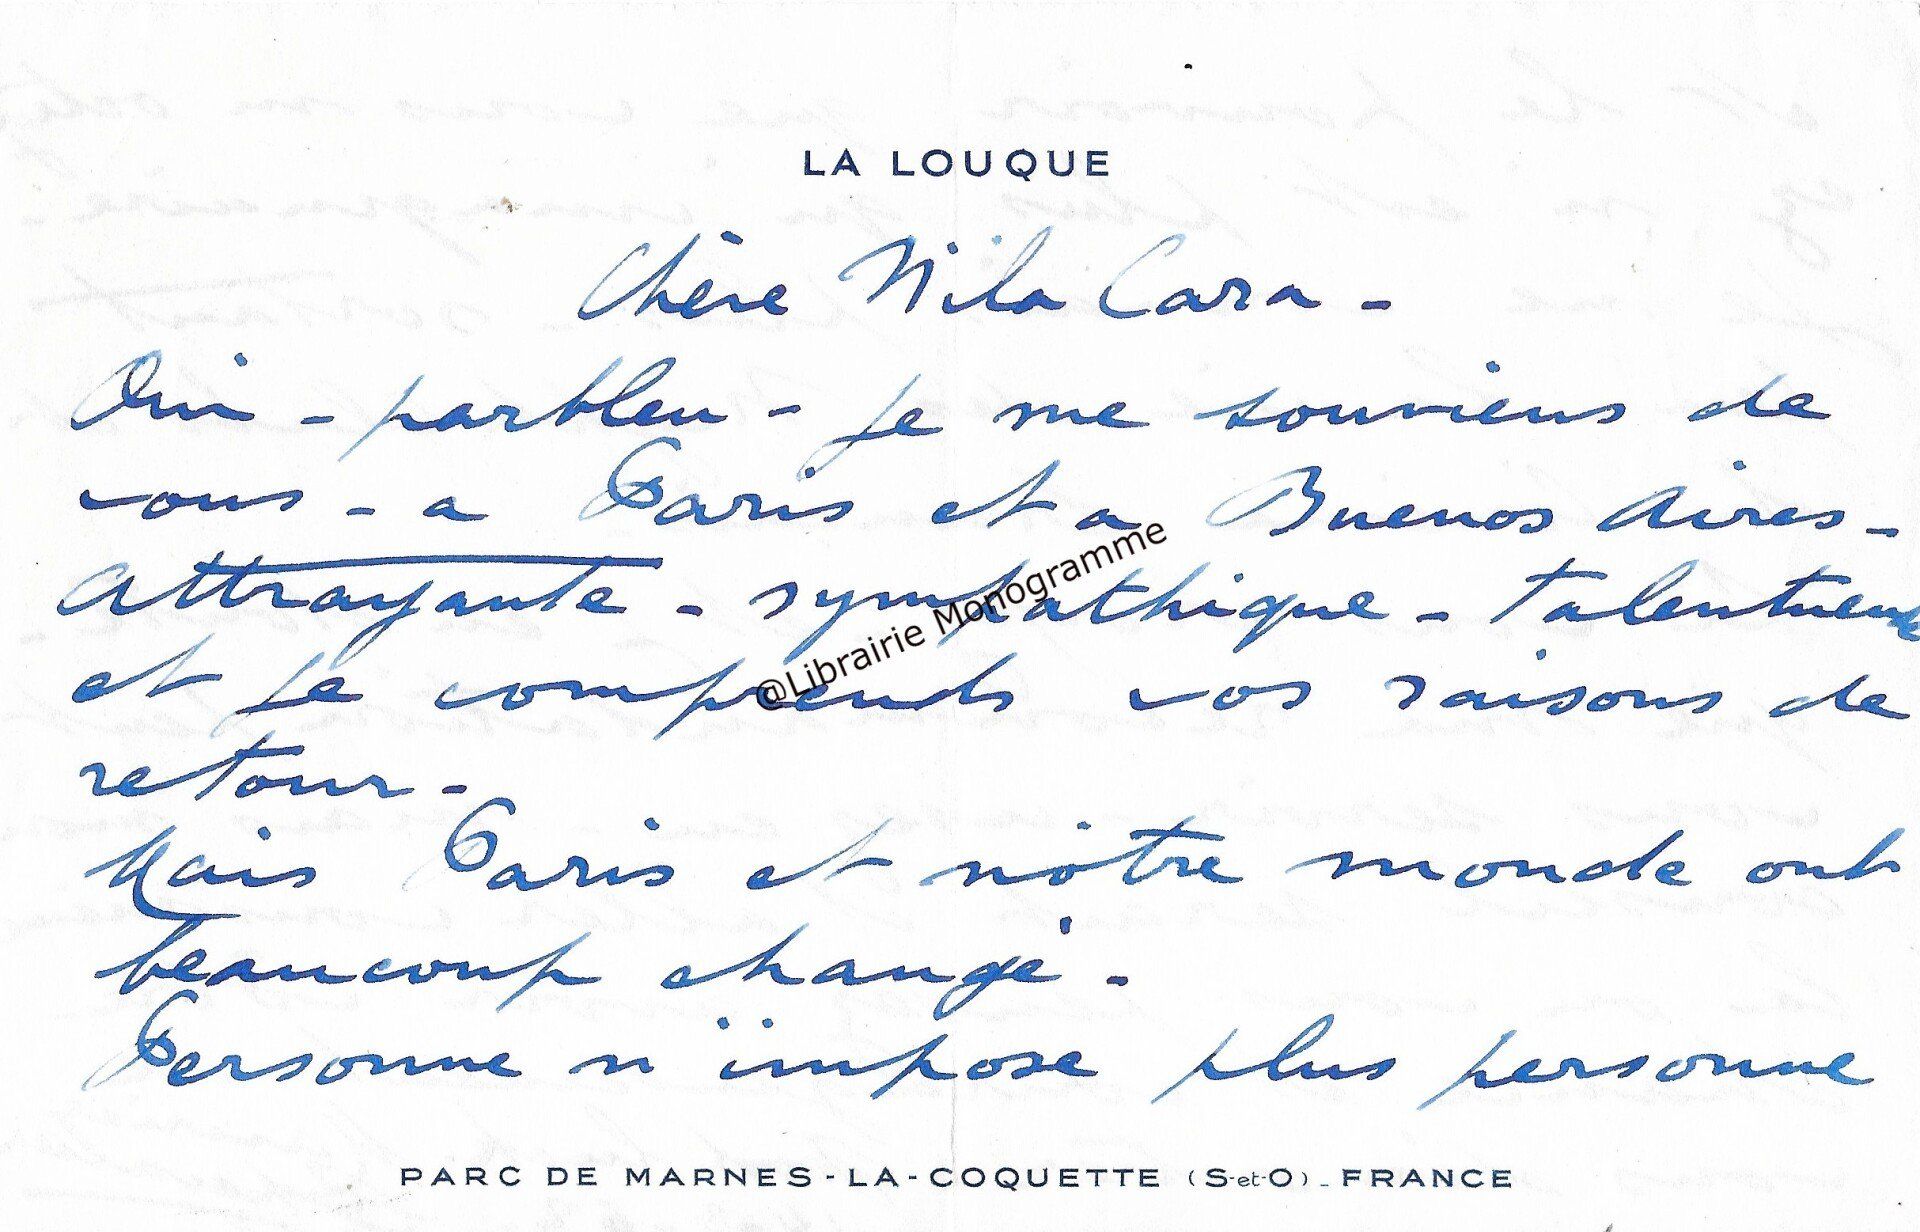 LA LOUQUE
Chère Nila Cara -
Oui - parbleu - je me souviens de
vous - a Paris et a Buenos Aires -
attrayante - sympathique - talentueuse
et je comprends vos raisons de
retour -
Mais Paris et nôtre monde ont
beaucoup changé -
Personne n'impose plus personne
@Librairie Monogramme
PARC DE MARNES-LA-COQUETTE (S-et-O)_FRANCE